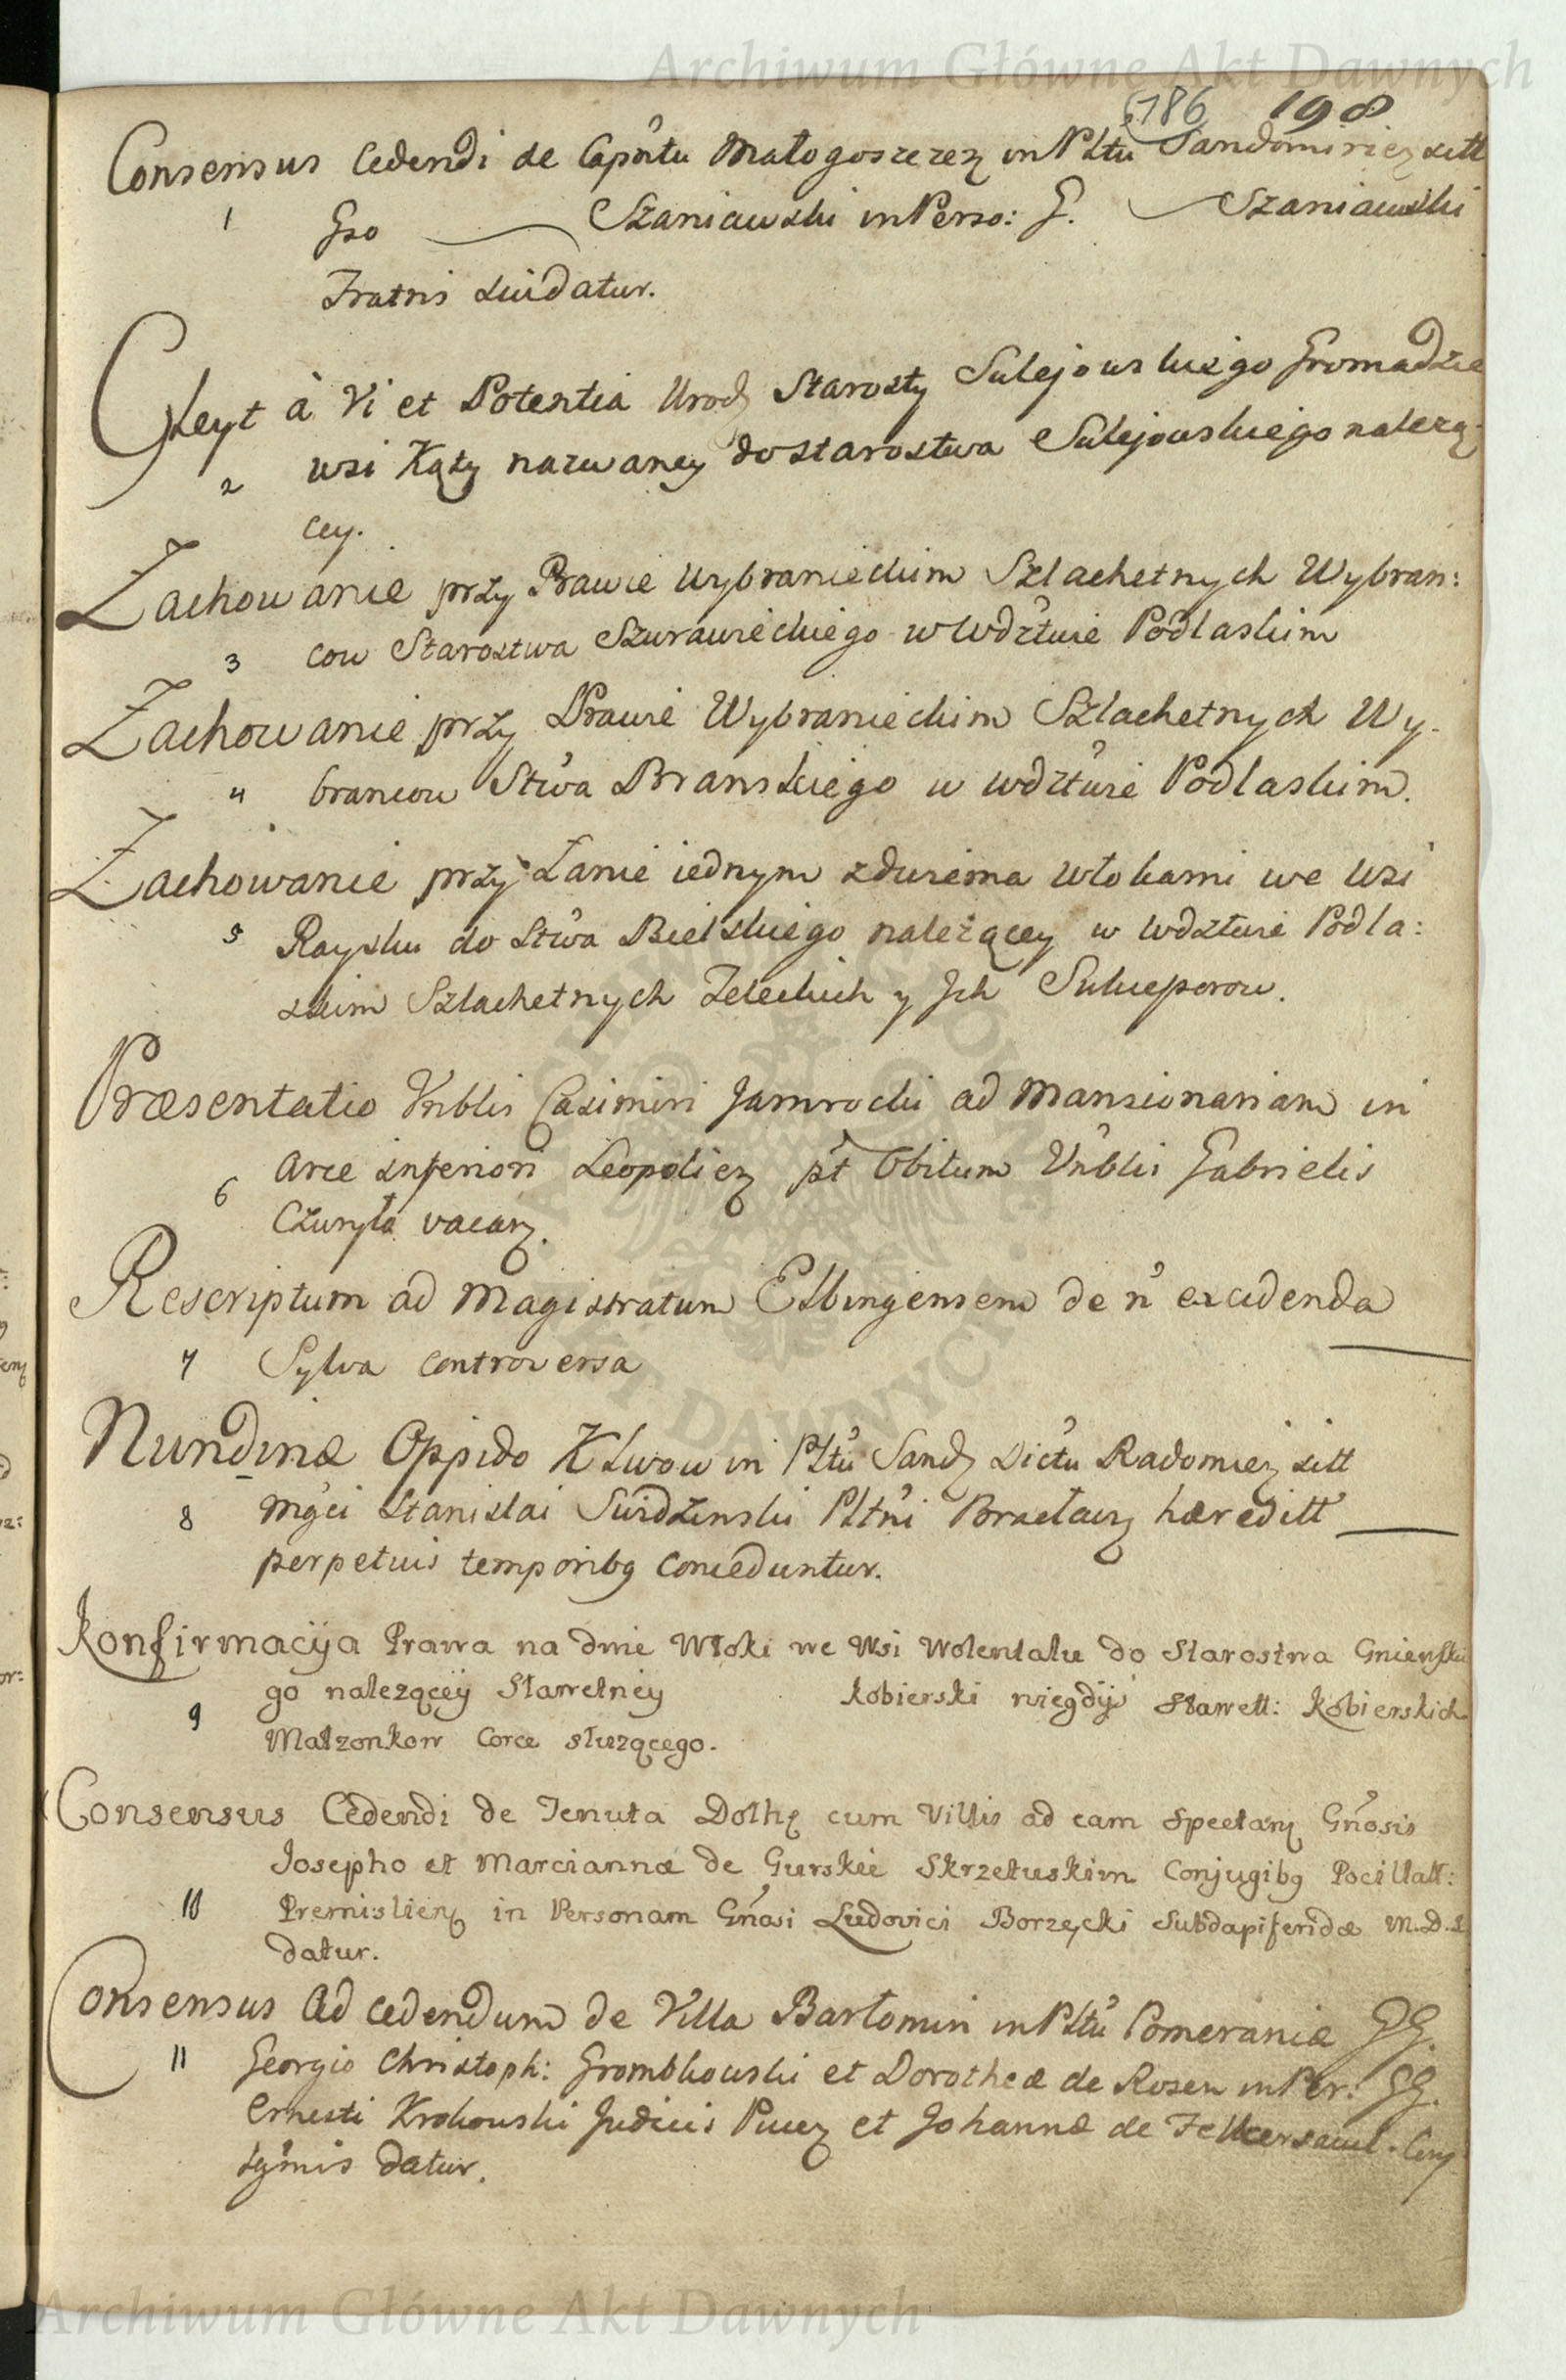 Archiwum Główne Akt Dawnych
186 198
Consensus Cedendi de Capntu Małogoszczez in Pltu Sandomiriez sitt
1 Gso Szaniawski in Perso: G. Szaniawski
Fratris sui datur.
Gleyt à Vi et Potentia Urodz Starosty Sulejowskiego Gromadzie
2 wsi Kąty nazwaney do starostwa Sulejowskiego należą-
cey.
Zachowanie przy Prawie Wybranieckim Szlachetnych Wybran:
3 cow Starostwa Szurawieckiego w Wdztwie Podlaskim
Zachowanie przy Prawie Wybranieckim Szlachetnych Wy-
4 brancow Stwa Branskiego w wdztwie Podlaskim.
Zachowanie przy Łanie iednym zdwiema włokami we Wsi
5 Raysku do Stwa Bielskiego należącey w wdztwie Podla:
skim Szlachetnych Zeleckich y Jch Sukcessorow.
Præsentatio Vnblis Casimiri Jamrocki ad Mansionariam in
6 Arce inferiori Leopoliez pt Obitum Vnblis Gabrielis
Czuryło vacanz.
Rescriptum ad Magistratum Elbingensem de n excidenda
7 Sylva controversa
Nundinæ Oppido Klwow in Pltu Sandz Dictu Radomiez sitt
8 Mgci Stanislai Swidzinski Pltni Braclawz hæreditt
perpetuis temporibg conceduntur.
Konfirmacÿa Prawa na dwie Włoki we Wsi Wolentalu do Starostwa Gniewskie
9 go nalezącëÿ Sławetnëÿ Kobierski niegdÿś Sławett: Kobierskich
Małzonkow Corce słuzącego.
Consensus Cedendi de Tenuta Dołhę cum Villis ad eam Spectanz Gnosis
Josepho et Marciannæ de Gurskie Skrzetuskim Conjugibg Pocillatt:
10 Premislienz in Personam Gnosi Ludovici Borzęcki Subdapiferidæ M.D.L
datur.
Consensus Ad cedendum de Villa Bartomin in Pltu Pomeraniæ GG.
11 Georgio Christoph: Grombkowski et Dorotheæ de Rosen in Per: GG.
Ernesti Krokowski Judicis Pucez et Johannæ de Felkersamb. Conj
sgmis datur.
Archiwum Główne Akt Dawnych